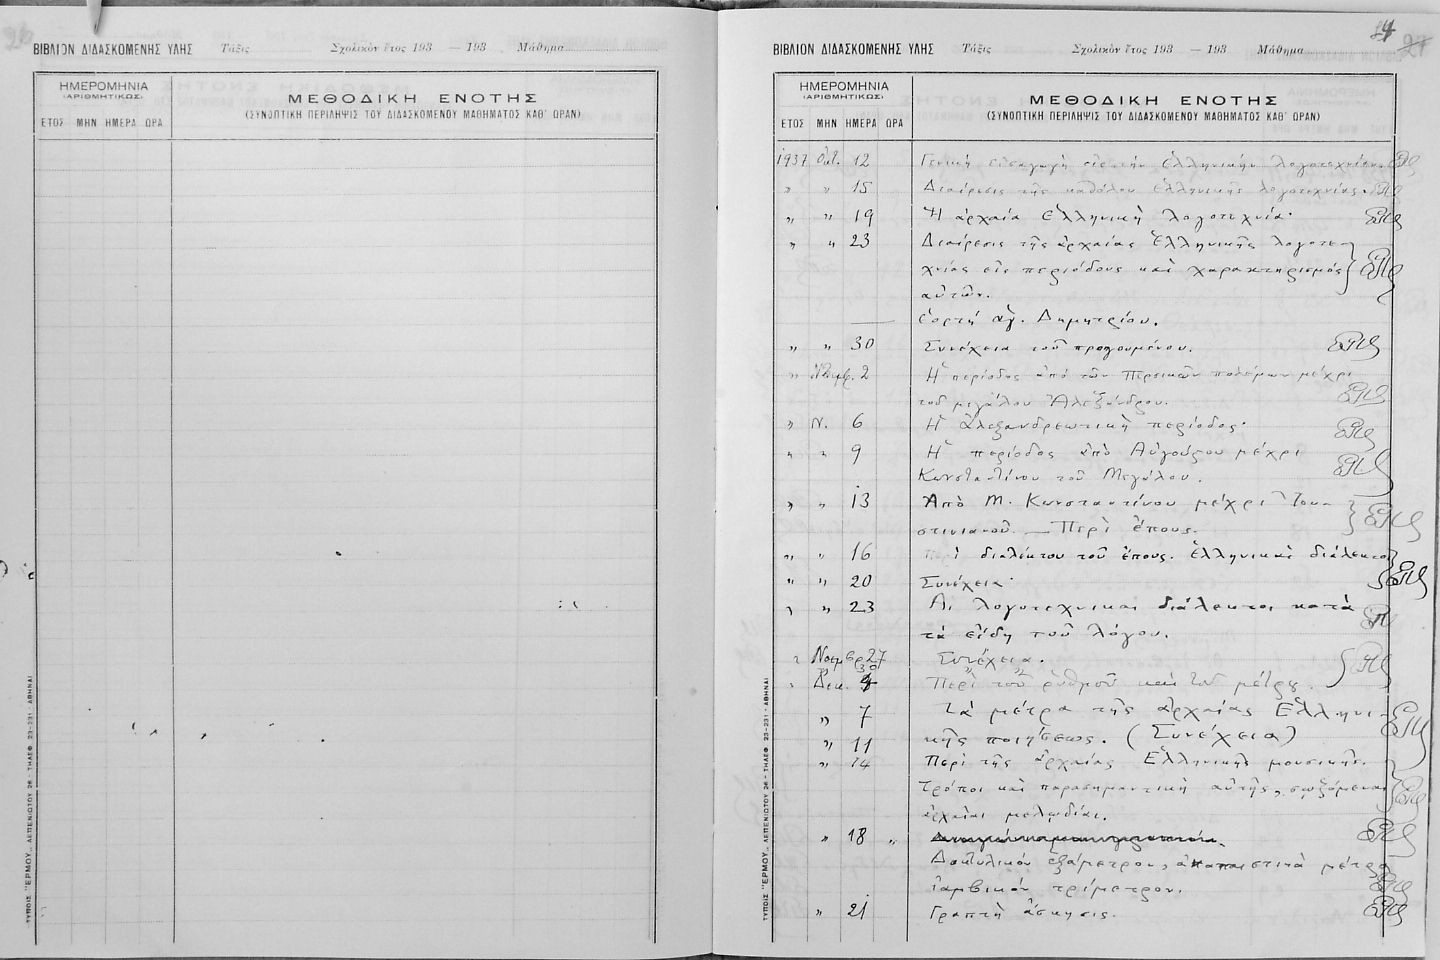 ΒΙΒΛΙΟΝ ΔΙΔΑΣΚΟΜΕΝΗΣ ΥΛΗΣ Τάξις Σχολικὸν ἔτος 193 — 193 Μάθημα
ΗΜΕΡΟΜΗΝΙΑ
(ΑΡΙΘΜΗΤΙΚΩΣ)
ΜΕΘΟΔΙΚΗ ΕΝΟΤΗΣ
(ΣΥΝΟΠΤΙΚΗ ΠΕΡΙΛΗΨΙΣ ΤΟΥ ΔΙΔΑΣΚΟΜΕΝΟΥ ΜΑΘΗΜΑΤΟΣ ΚΑΘ' ΩΡΑΝ)
ΕΤΟΣ ΜΗΝ ΗΜΕΡΑ ΩΡΑ
ΤΥΠΟΙΣ "ΕΡΜΟΥ,, ΛΕΠΕΝΙΩΤΟΥ 26 - ΤΗΛΕΦ. 23-231 - ΑΘΗΝΑΙ
27
ΒΙΒΛΙΟΝ ΔΙΔΑΣΚΟΜΕΝΗΣ ΥΛΗΣ Τάξις Σχολικὸν ἔτος 193 — 193 Μάθημα
ΗΜΕΡΟΜΗΝΙΑ
(ΑΡΙΘΜΗΤΙΚΩΣ)
ΜΕΘΟΔΙΚΗ ΕΝΟΤΗΣ
(ΣΥΝΟΠΤΙΚΗ ΠΕΡΙΛΗΨΙΣ ΤΟΥ ΔΙΔΑΣΚΟΜΕΝΟΥ ΜΑΘΗΜΑΤΟΣ ΚΑΘ' ΩΡΑΝ)
ΕΤΟΣ ΜΗΝ ΗΜΕΡΑ ΩΡΑ
1937 Οκτ. 12 Γενικὴ εἰσαγωγὴ εἰς τὴν ἑλληνικὴν λογοτεχνίαν.
" " 15 Διαίρεσις τῆς καθόλου ἑλληνικῆς λογοτεχνίας.
" " 19 Ἡ ἀρχαία ἑλληνικὴ λογοτεχνία.
" " 23 Διαίρεσις τῆς ἀρχαίας ἑλληνικῆς λογοτε-
χνίας εἰς περιόδους καὶ χαρακτηρισμός
αὐτῶν.
— Εορτή ἁγ. Δημητρίου.
" " 30 Συνέχεια τοῦ προηγουμένου.
" Νοεμβρ. 2 Ἡ περίοδος ἀπὸ τῶν Περσικῶν πολέμων μέχρι
τοῦ μεγάλου Ἀλεξάνδρου.
" Ν. 6 Ἡ ἀλεξανδρεωτικὴ περίοδος.
" " 9 Ἡ περίοδος ἀπὸ Αὐγούστου μέχρι
Κωνσταντίνου τοῦ Μεγάλου.
" " 13 Ἀπὸ Μ. Κωνσταντίνου μέχρι Ἰου-
στινιανοῦ. — Περὶ ἔπους.
" " 16 Περὶ διαλέκτου τοῦ ἔπους. Ἑλληνικαὶ διάλεκτοι
" " 20 Συνέχεια.
" " 23 Αἱ λογοτεχνικαὶ διάλεκτοι κατὰ
τὰ εἴδη τοῦ λόγου.
" Νοεμβρ 27 Συνέχεια.
30
" Δεκ. 4 Περὶ τοῦ ῥυθμοῦ καὶ τοῦ μέτρου.
" 7 Τὰ μέτρα τῆς ἀρχαίας Ἑλληνι-
" 11 κῆς ποιήσεως. (Συνέχεια)
" 14 Περὶ τῆς ἀρχαίας Ἑλληνικῆς μουσικῆς.
Τρόποι καὶ παρασημαντικὴ αὐτῆς, σωζόμεναι
ἀρχαῖαι μελῳδίαι.
" 18 "
Δακτυλικόν ἑξάμετρον, ἀναπαιστικὰ μέτρα
ἰαμβικόν τρίμετρον.
" 21 Γραπτὴ ἄσκησις.
ΤΥΠΟΙΣ "ΕΡΜΟΥ,, ΛΕΠΕΝΙΩΤΟΥ 26 - ΤΗΛΕΦ. 23-231 - ΑΘΗΝΑΙ